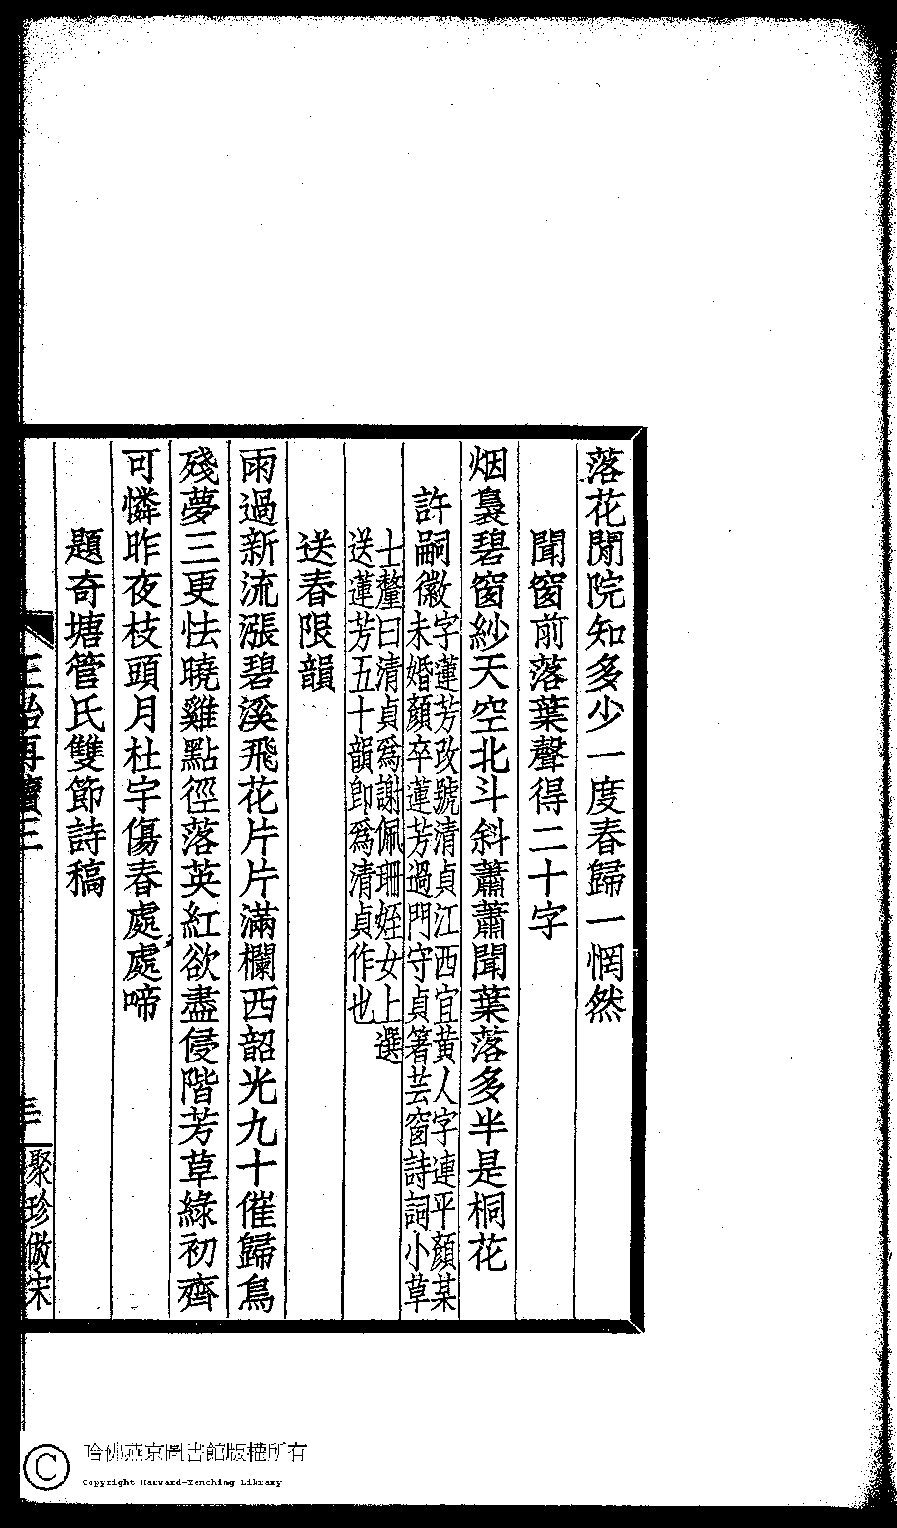 落花閒院知多少一度春歸一惘然
聞窗前落葉聲得二十字
烟裊碧窗紗天空北斗斜蕭蕭聞葉落多半是桐花
許嗣徽字蓮芳改號清貞江西宜黃人字連平顏某
未婚顏卒蓮芳過門守貞箸芸窗詩詞小草
士釐曰清貞爲謝佩珊姪女上選
送蓮芳五十韻即爲清貞作也
送春限韻
雨過新流漲碧溪飛花片片滿欄西韶光九十催歸鳥
殘夢三更怯曉雞點徑落英紅欲盡侵階芳草綠初齊
可憐昨夜枝頭月杜宇傷春處處啼
題奇塘管氏雙節詩稿
三
聚珍倣宋
哈佛燕京圖書館版權所有
Copyright Harvard-Yenching Library